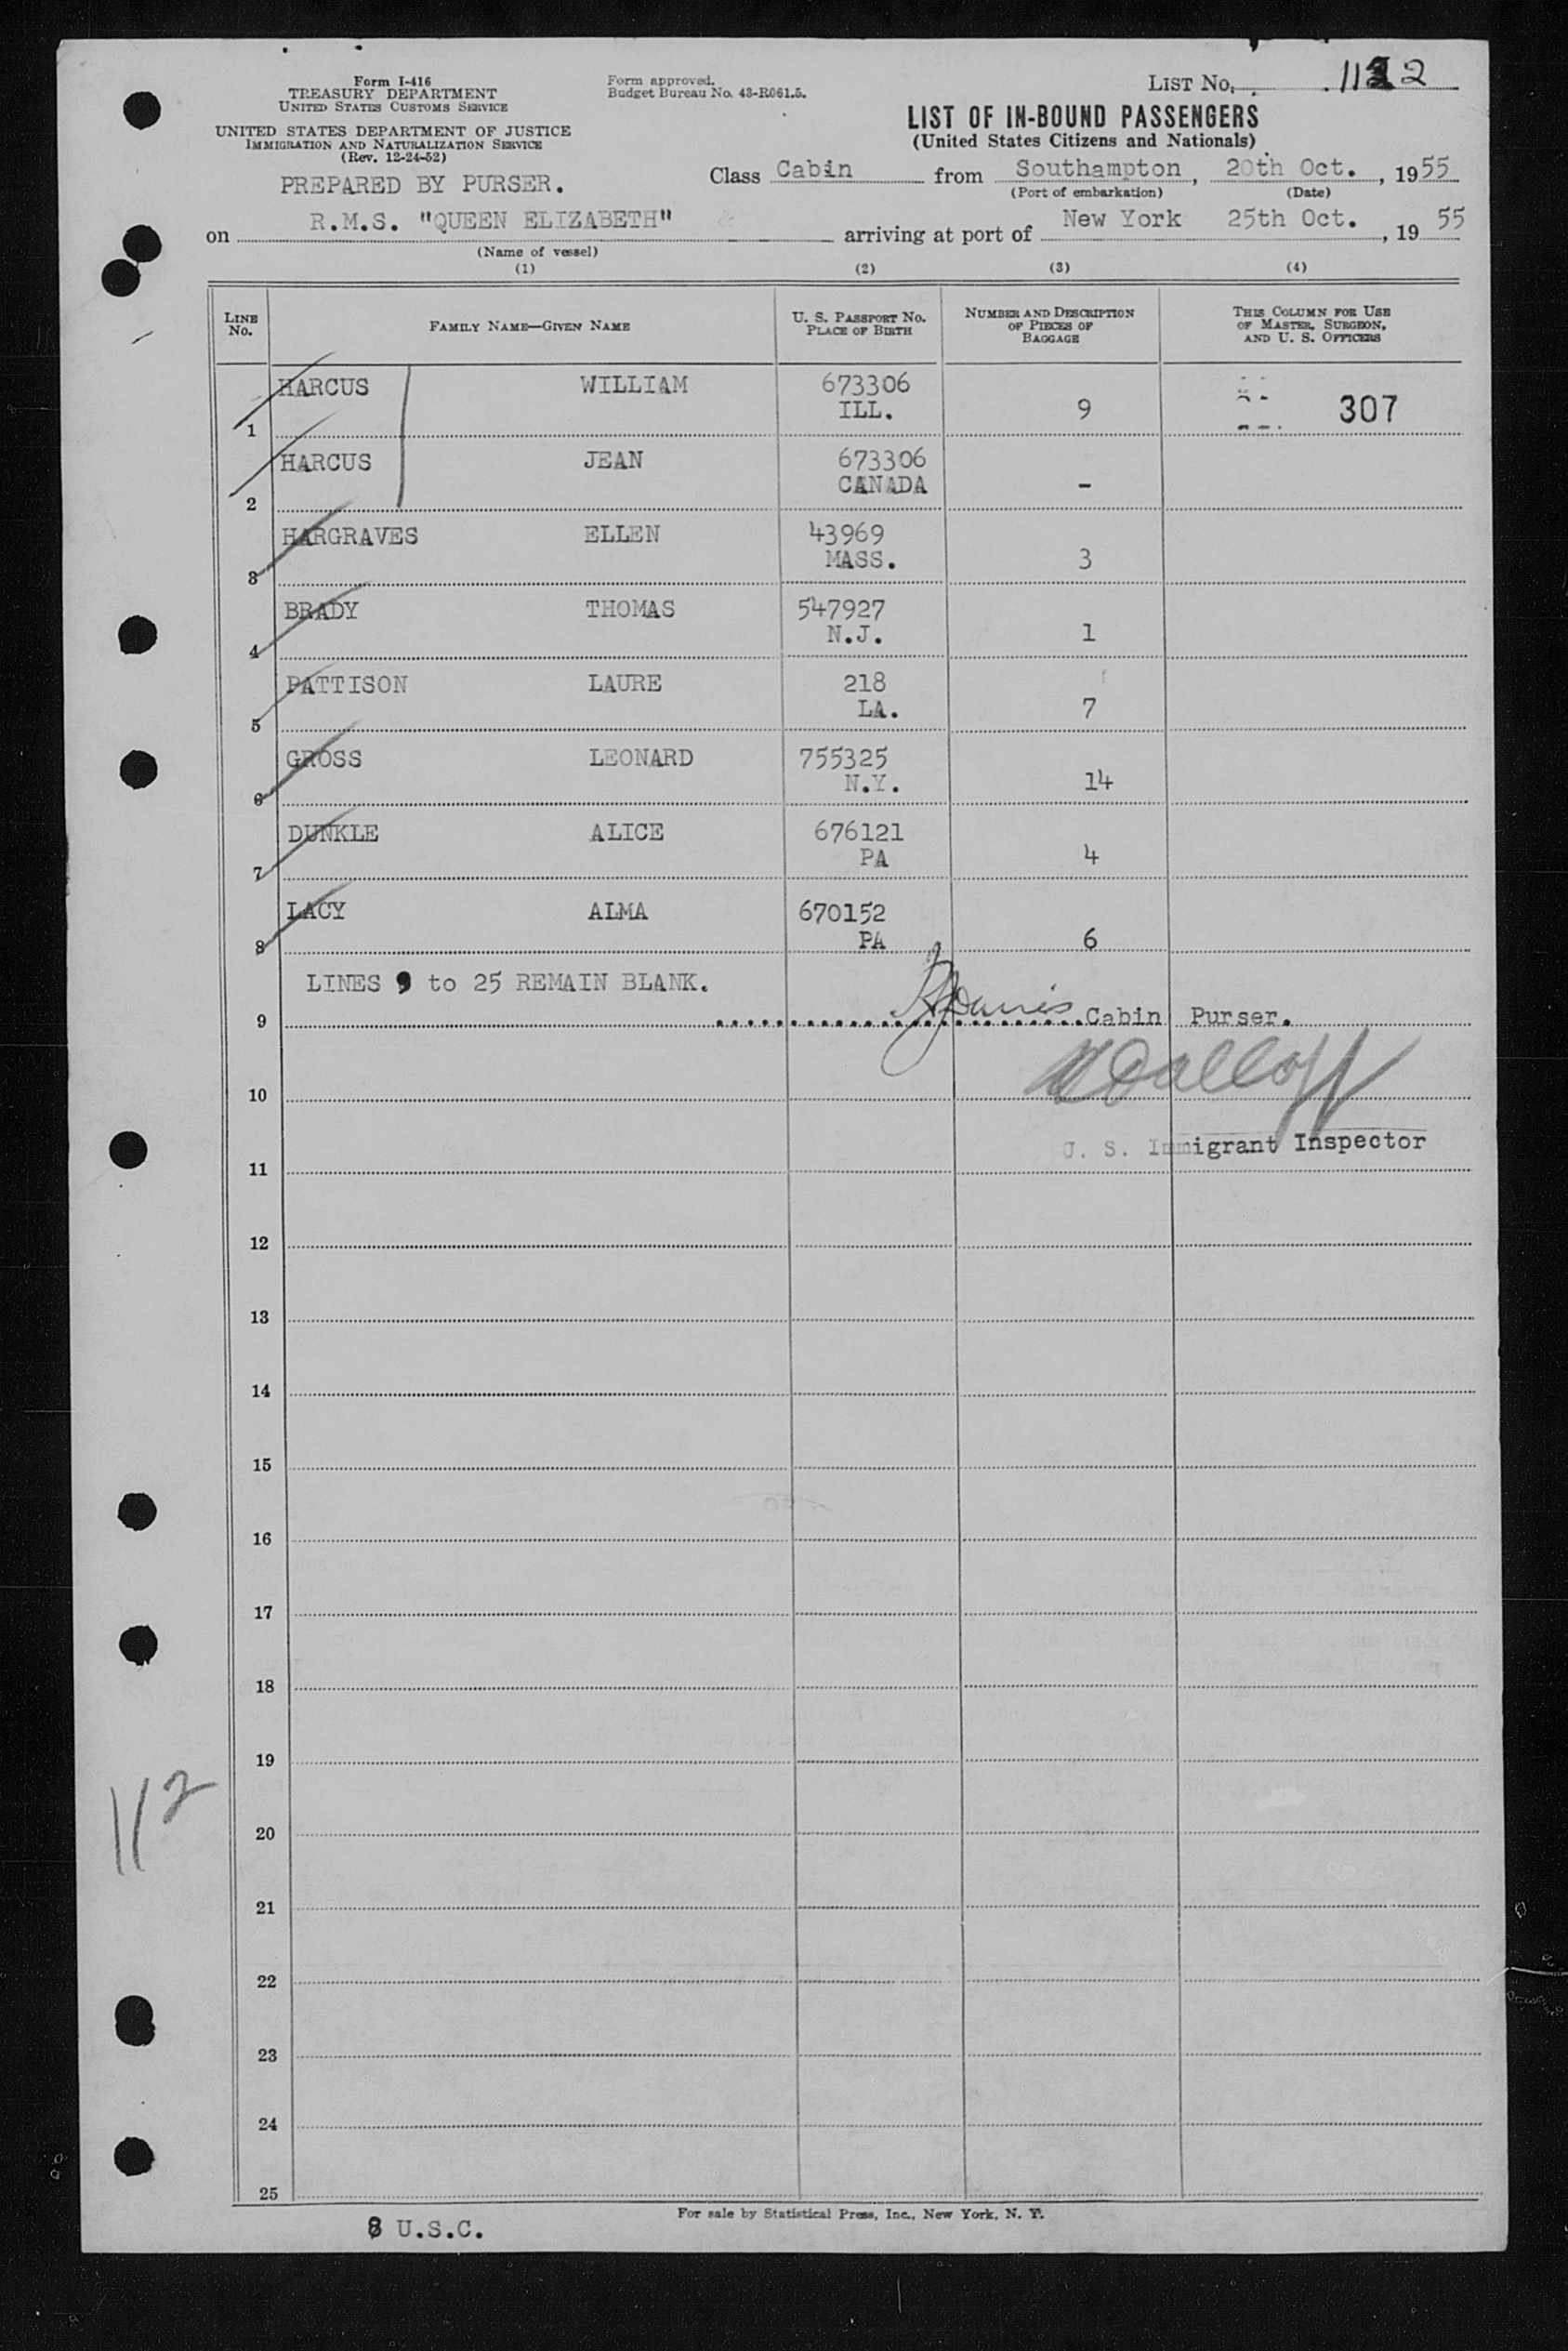 Form I-416
TREASURY DEPARTMENT
UNITED STATES CUSTOMS SERVICE
UNITED STATES DEPARTMENT OF JUSTICE
IMMIGRATION AND NATURALIZATION SERVICE
(Rev. 12-24-52)
PREPARED BY PURSER.
Form approved.
Budget Bureau No. 43-R061.5.
LIST No. 112
LIST OF IN-BOUND PASSENGERS
(United States Citizens and Nationals)
Class Cabin from Southampton, 20th Oct., 1955
(Port of embarkation) (Date)
on R.M.S. "QUEEN ELIZABETH" arriving at port of New York 25th Oct., 19 55
(Name of vessel)
(1) (2) (3) (4)
LINE No. FAMILY NAME—GIVEN NAME U. S. PASSPORT No. PLACE OF BIRTH NUMBER AND DESCRIPTION OF PIECES OF BAGGAGE THIS COLUMN FOR USE OF MASTER, SURGEON, AND U. S. OFFICERS
HARCUS WILLIAM 673306
1 ILL. 9 307
HARCUS JEAN 673306
2 CANADA -
HARGRAVES ELLEN 43969
3 MASS. 3
BRADY THOMAS 547927
4 N.J. 1
PATTISON LAURE 218
5 LA. 7
GROSS LEONARD 755325
6 N.Y. 14
DUNKLE ALICE 676121
7 PA 4
LACY ALMA 670152
8 PA 6
LINES 9 to 25 REMAIN BLANK.
9 Cabin Purser.
10
U. S. Immigrant Inspector
11
12
13
14
15
16
17
18
19
112
20
21
22
23
24
25
For sale by Statistical Press, Inc., New York, N. Y.
8 U.S.C.